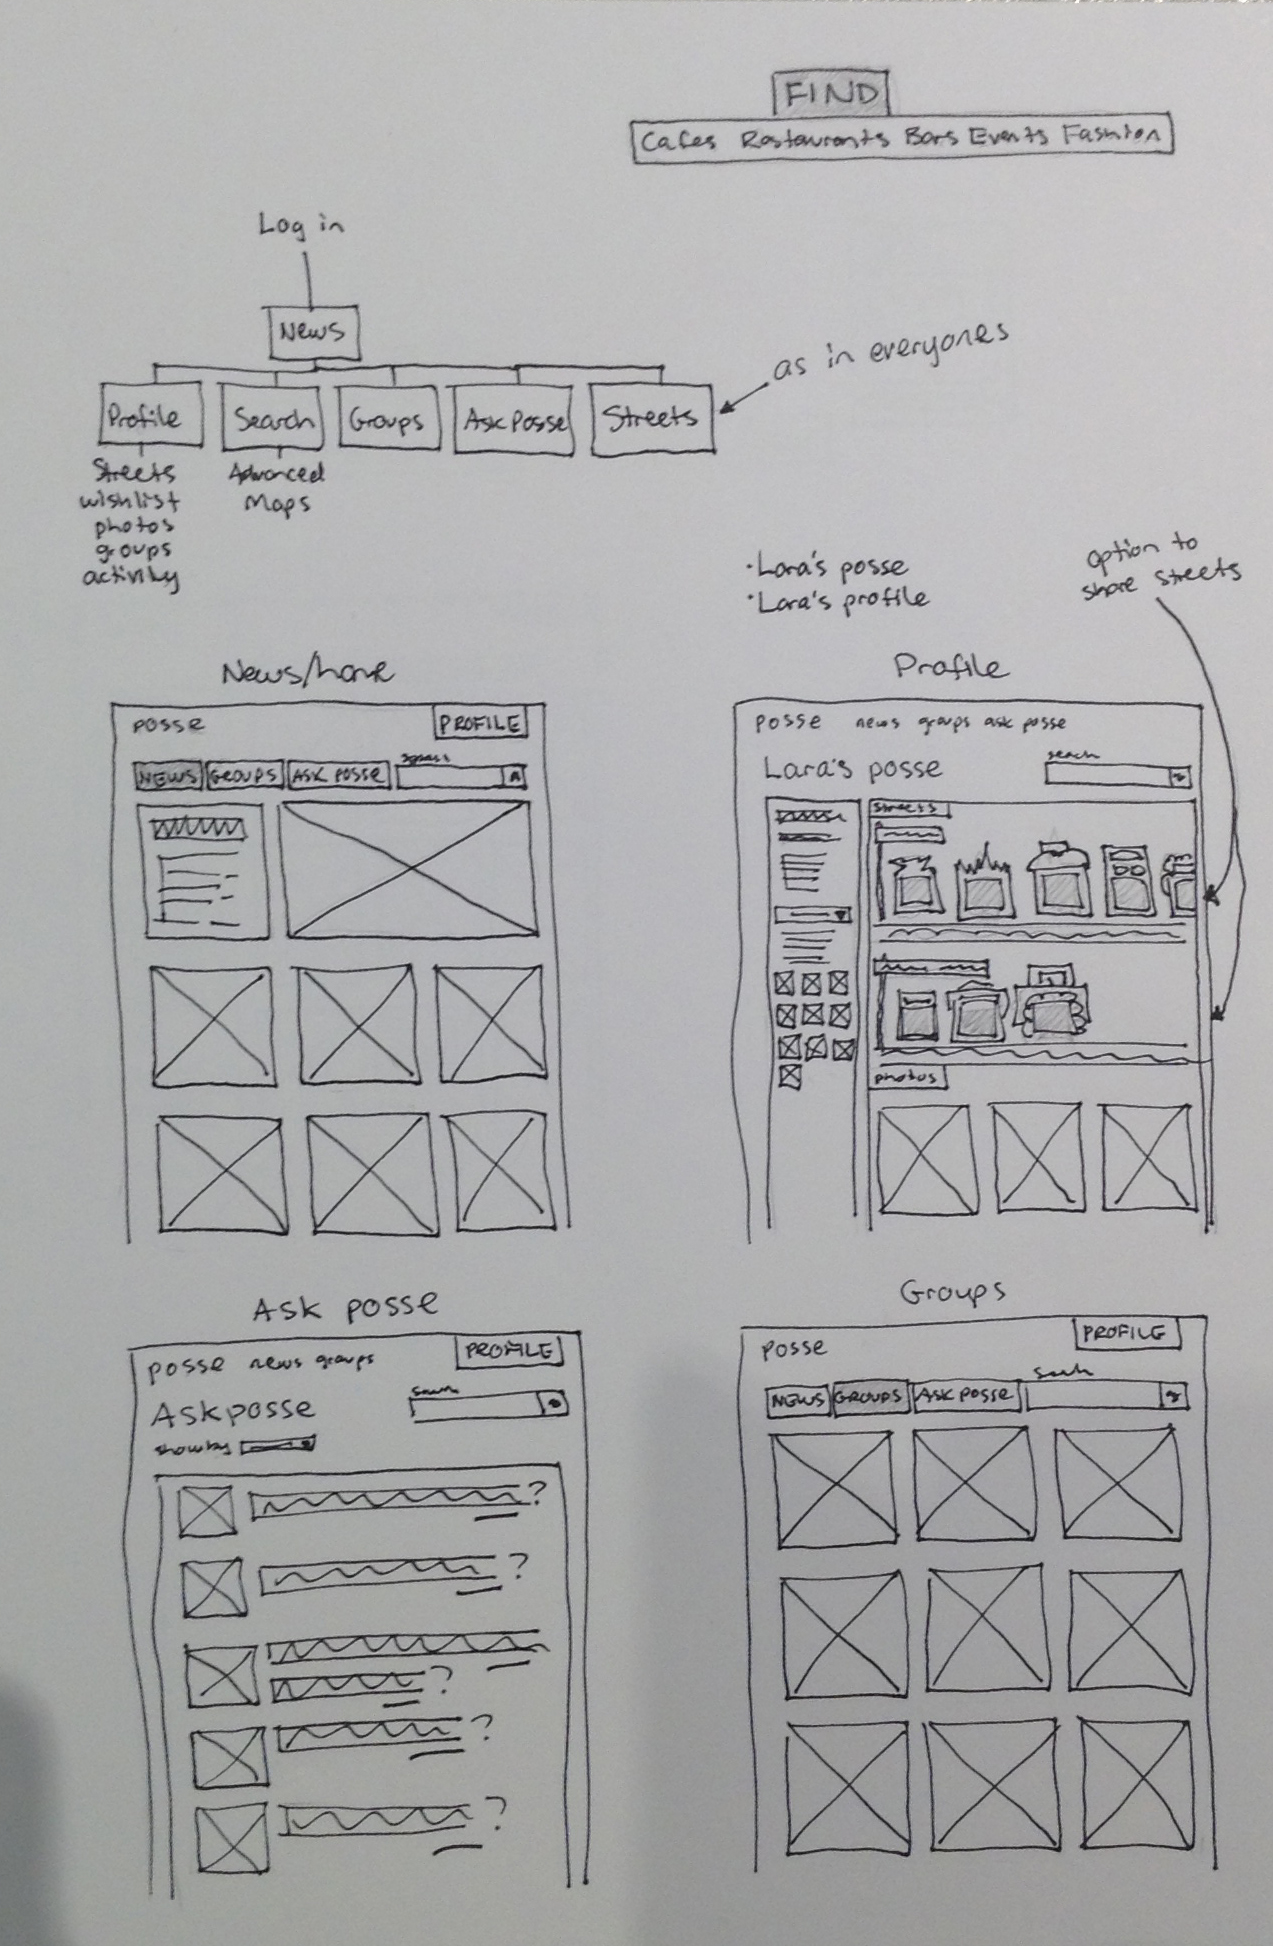 FIND
Cafes Restaurants Bars Events Fashion
Log in
News
as in everyones
Profile
Search
Groups
Ask Posse
Streets
Streets
wishlist
photos
groups
activity
Advanced
Maps
·Lara's posse
·Lara's profile
option to
share streets
News/home
posse
PROFILE
NEWS
GROUPS
ASK POSSE
search
Profile
posse news groups ask posse
Lara's posse
search
streets
photos
Ask posse
posse news groups
PROFILE
Ask posse
search
show by
?
?
?
?
?
Groups
posse
PROFILE
NEWS
GROUPS
ASK POSSE
search